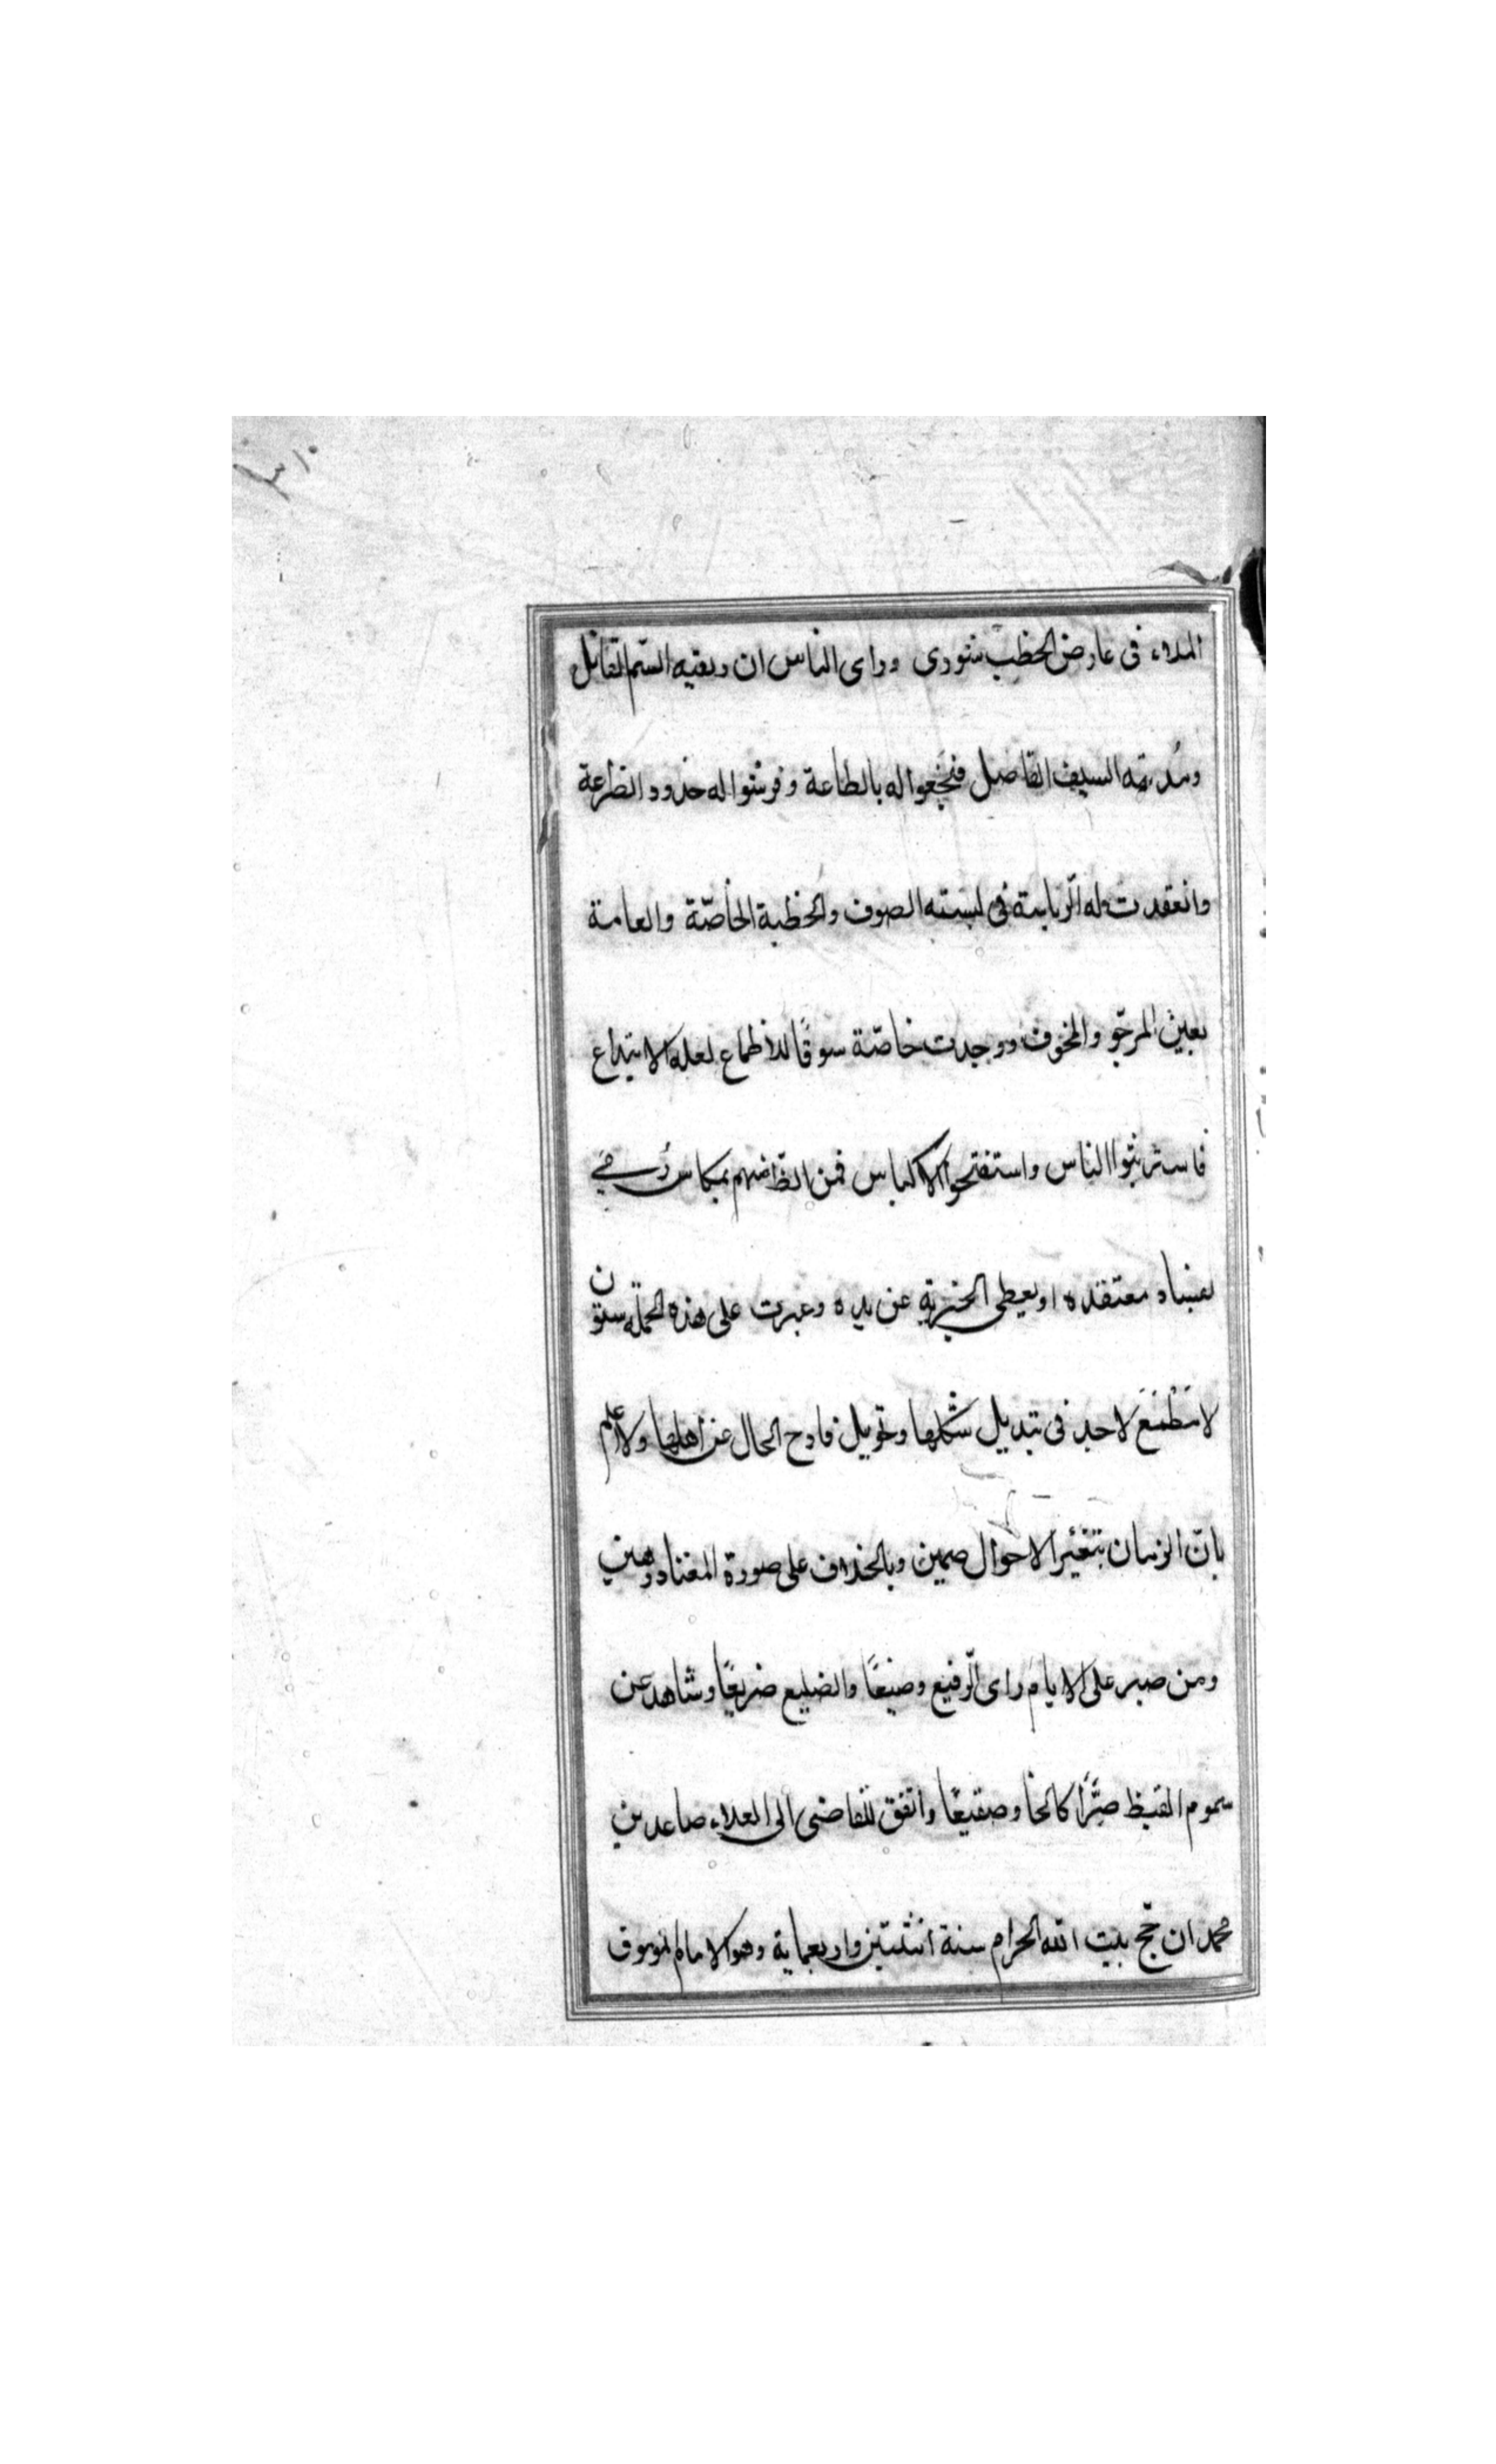 الملاء فى عارض الخطب شورى وراى الناس ان ريقيه السّم القاتل
وسُدته السيف الفاصل فبخعوا له بالطاعة وفرشوا له خدود الضراعة
وانعقدت له الرياسة فى لبسته الصوف والخطبة الخاصّة والعامة
بعين المرجّو والمخوف ووجدت خاصّة سوقًا للاطماع لعله الابتداع
فاسترشوا الناس واستفتحوا الاكياس فمن الظّ منهم بمكاس رُمى
بفساد معتقده او يعطى الجزية عن يده وعبرت على هذه الجملة ستون
لا مَطْمَعَ لاحد فى تبديل شكلها وتحويل فادح الحال عن اهلها ولا علم
بانّ الزمان بتغيّر الاحوال ضمين وبالخلاف على صورة المعتاد رهين
ومن صبر على الايام راى الرّفيع وضيعًا والضليع ضريعًا وشاهد عن
سموم القيظ صِرًّا كالحًا وصقيعًا واتفق للقاضى ابى العلاء صاعد بن
محمد ان حجّ بيت الله الحرام سنة اثنتين واربعماية وهو الامام الموموق